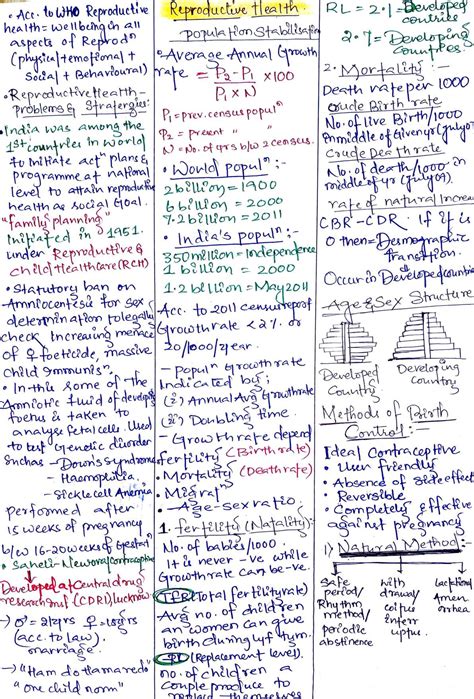 • Acc. to WHO Reproductive
health = wellbeing in all
aspects of Reprodⁿ
(physical + emotional +
Social + Behavioural)
• Reproductive Health –
problems & Strategies:
• India was among the
1st countries in world
to initiate actⁿ plans &
programme at national
level to attain reproductive
health as social Goal.
"family planning"
Initiated in 1951.
under Reproductive &
Child Health Care (RCH)
• Statutory ban on
Amniocentesis for sex
determination to legally
check Increasing menace
of ♀ foeticide, massive
child
• In this some of the
Amniotic fluid of develop
foetus is taken to
analyse fetal cells. Used
to test Genetic disorder
Such as – Down's Syndrome
– Haemophilia
– Sickle cell Anemia
performed after
15 weeks of pregnancy
b/w 16-20 weeks of Gestatⁿ
• Saheli – New oral contraceptive
Developed at Central drug
research inst (CDRI) Lucknow
→ ♂ = 21yrs ♀ = 18yrs
(acc. to law).
marriage.
→ "Ham do Hamare do"
"one child norm"
Reproductive Health
population Stabilisation
• Average Annual Growth
rate = P₂-P₁ / P₁ x N x100
P₁ = prev. census populⁿ
P₂ = present " "
N = No. of yrs b/w 2 census.
• World populⁿ :-
2 billion = 1900
6 billion = 2000
7.2 billion = 2011
• India's populⁿ:-
350 million = Independence
1 billion = 2000
1.2 billion = May 2011
Acc. to 2011 census report
Growth rate < 2% or
20/1000/year.
– Populⁿ Growth rate
Indicated by;
(i) Annual Avg Growth rate
(ii) Doubling time.
– Growth rate depend
fertility (Birth rate)
• Mortality (Death rate)
• Migratⁿ
• Age-sex ratio.
1. fertility (Natality):-
No. of babies/1000.
It is never -ve while
Growth rate can be -ve.
TFR (Total fertility rate)
Avg no. of children
an women can give
birth during lyf tym.
RL (Replacement level).
no. of children a
couple produce to
replace themselves
RL = 2.1 – Developed
countries
2.7 = Developing
Countries
2. Mortality :-
Death rate per 1000
Crude Birth rate
No. of live Birth/1000
in middle of Given yr (July 07
Crude Death rate
No. of death/1000 in
middle of yr (July 07).
rate of natural Increa
CBR – CDR. If it is
0 then = Demographic
transition.
Occur in Developed countries
Age & Sex Structure
Developed
Country
Developing
country
Methods of Birth
Control :-
Ideal Contraceptive
• User friendly
• Absence of side effect
• Reversible
• Completely effective
against pregnancy
1) Natural Method :-
Safe
period/
Rhythm
method/
periodic
abstinence
with
drawal/
coitus
inter
uptus
Lactation
Amen
orrhea